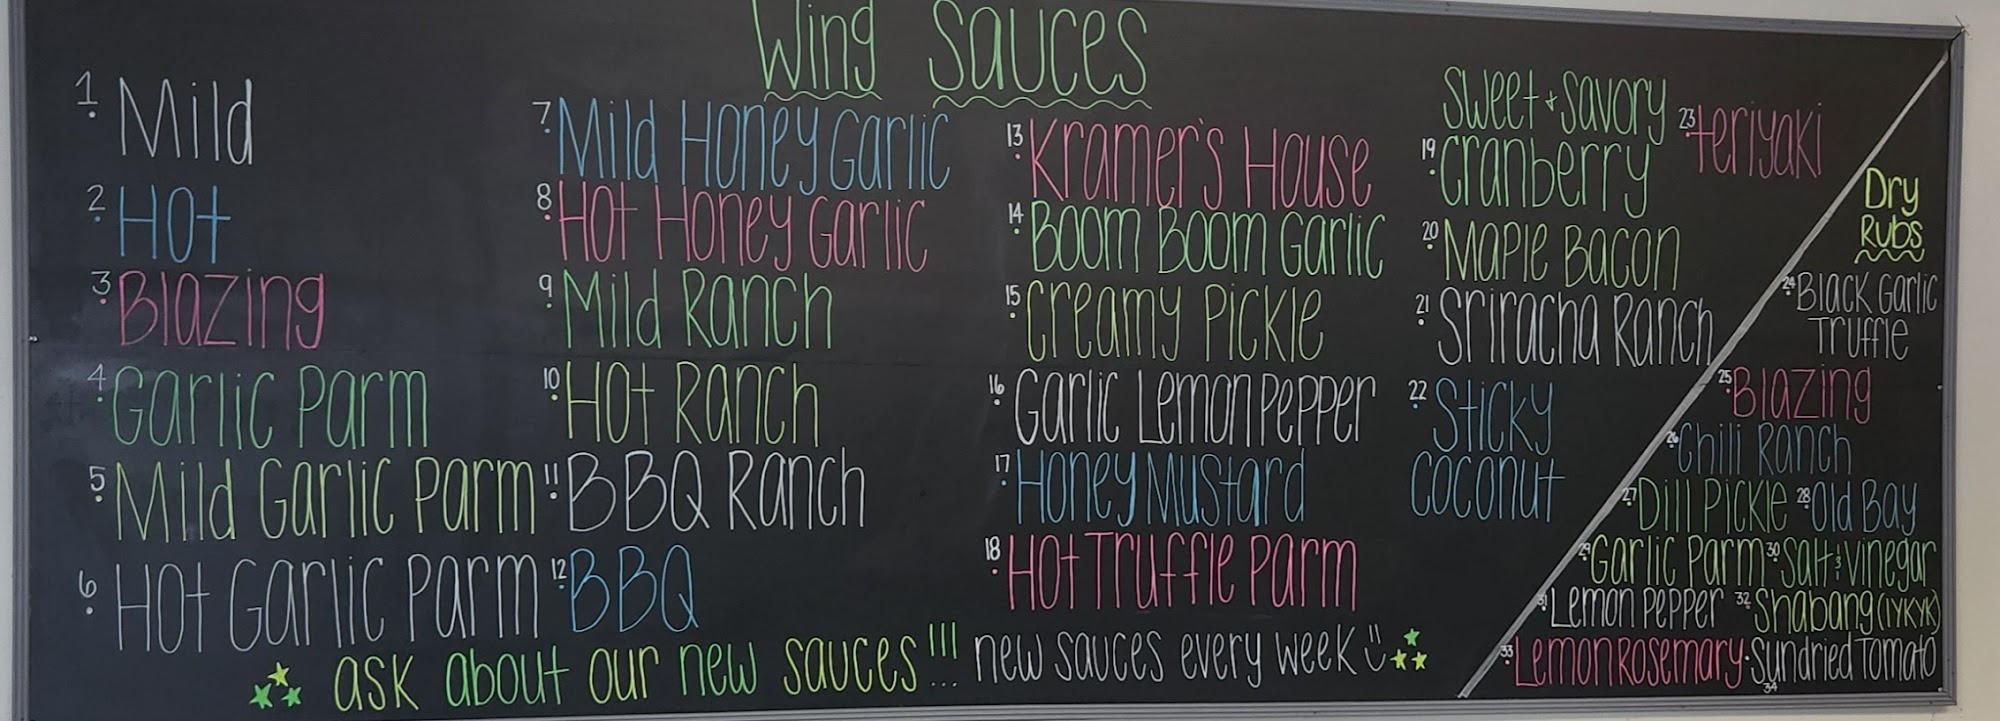 Wing Sauces
1. Mild
2. Hot
3. Blazing
4. Garlic Parm
5. Mild Garlic Parm
6. Hot Garlic Parm
7. Mild Honey Garlic
8. Hot Honey Garlic
9. Mild Ranch
10. Hot Ranch
11. BBQ Ranch
12. BBQ
13. Kramer's House
14. Boom Boom Garlic
15. Creamy Pickle
16. Garlic Lemon Pepper
17. Honey Mustard
18. Hot Truffle Parm
Sweet + Savory
19. Cranberry
20. Maple Bacon
21. Sriracha Ranch
22. Sticky
Coconut
23. Teriyaki
Dry
Rubs
24. Black Garlic
Truffle
25. Blazing
26. Chili Ranch
27. Dill Pickle 28. Old Bay
29. Garlic Parm 30. Salt & Vinegar
31. Lemon Pepper 32. Shabang (IYKYK)
33. Lemon Rosemary 34. Sundried Tomato
ask about our new sauces!!! new sauces every week